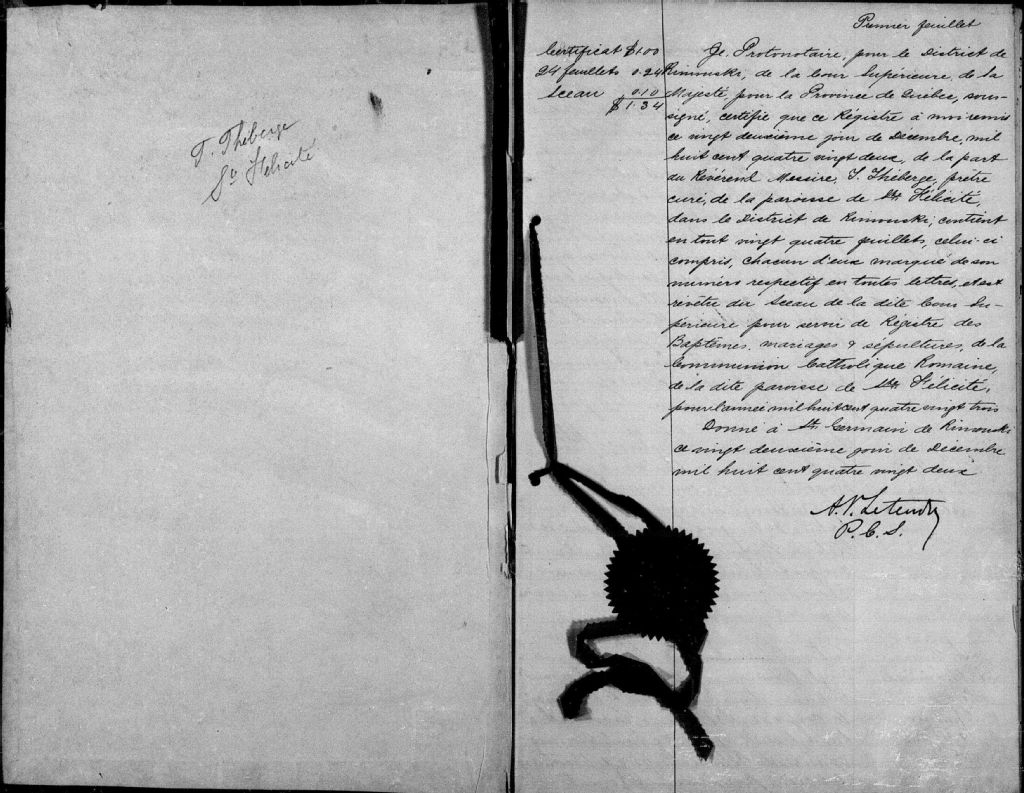 T. Théberge
Ste Félicité
Premier feuillet
Certificat $1.00
24 feuillets 0.24
Sceau 0.10
$1.34
Je, Protonotaire, pour le District de
Rimouski, de la Cour Supérieure, de la
Majesté, pour la Province de Québec, sous-
signé, certifie que ce Régistre à moi remis
ce vingt deuxième jour de Décembre, mil
huit cent quatre vingt deux, de la part
du Révérend Messire, T. Théberge, prêtre
curé, de la paroisse de Ste Félicité,
dans le District de Rimouski, contient
en tout vingt quatre feuillets, celui-ci
compris, chacun d'eux marqué de son
numéro respectif en toutes lettres, et est
revêtu du Sceau de la dite Cour Su-
périeure pour servir de Régistre des
Baptêmes, mariages & sépultures, de la
Communion Catholique Romaine,
de la dite paroisse de Ste Félicité,
pour l'année mil huit cent quatre vingt trois
Donné à St. Germain de Rimouski
ce vingt deuxième jour de Décembre
mil huit cent quatre vingt deux
A. P. Letendre
P. C. S.